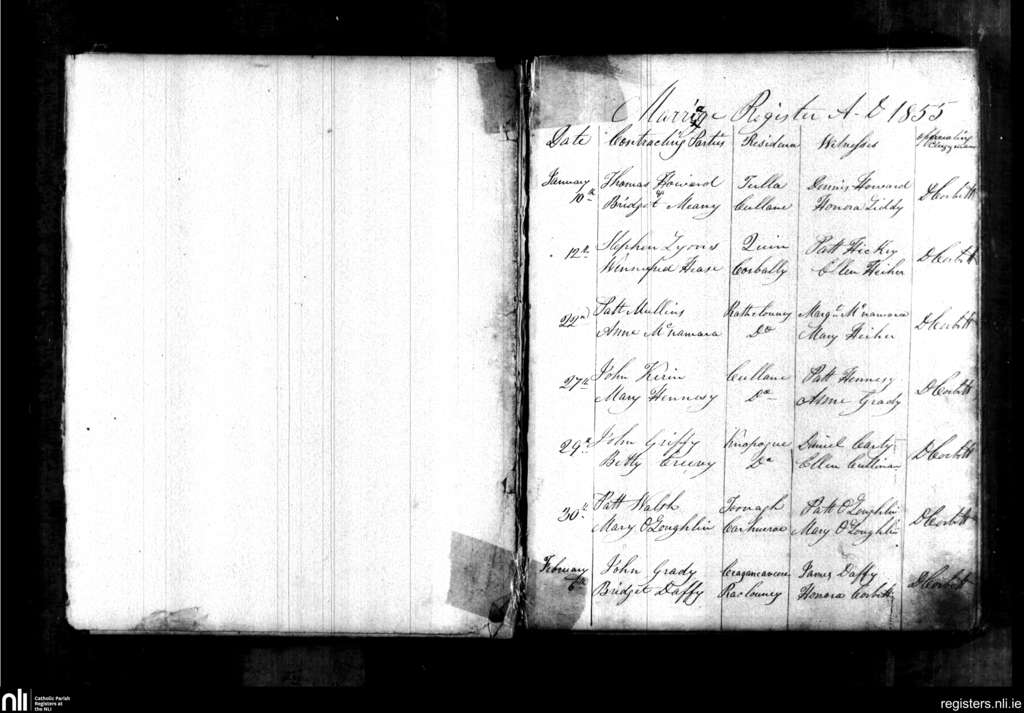 Marriage Register A-D 1855
Date Contracting Parties Residence Witnesses Officiating Clergyman
January 10th Thomas Howard Tulla Dennis Howard D Corbett
Bridget Meany Cullane Honora Liddy
12th Stephen Lyons Quin Patt Hickey D Corbett
Winnifred Hease Corbally Ellen Heiher
22nd Patt Mullins Rathclouney Margt McNamara D Corbett
Anne McNamara Do Mary Heiher
27th John Kirin Cullane Patt Hennesy D Corbett
Mary Hennesy Do Anne Grady
29th John Griffy Knapogue Daniel D Corbett
Betty Creevy Do Ellen Cullinan
30th Patt Walsh Toonagh Patt O'Loughlin D Corbett
Mary O'Loughlin Mary O'Loughlin
February 6th John Grady James Daffy D Corbett
Bridget Daffy Honora Corbett
nli
Catholic Parish
Registers at
the NLI
registers.nli.ie